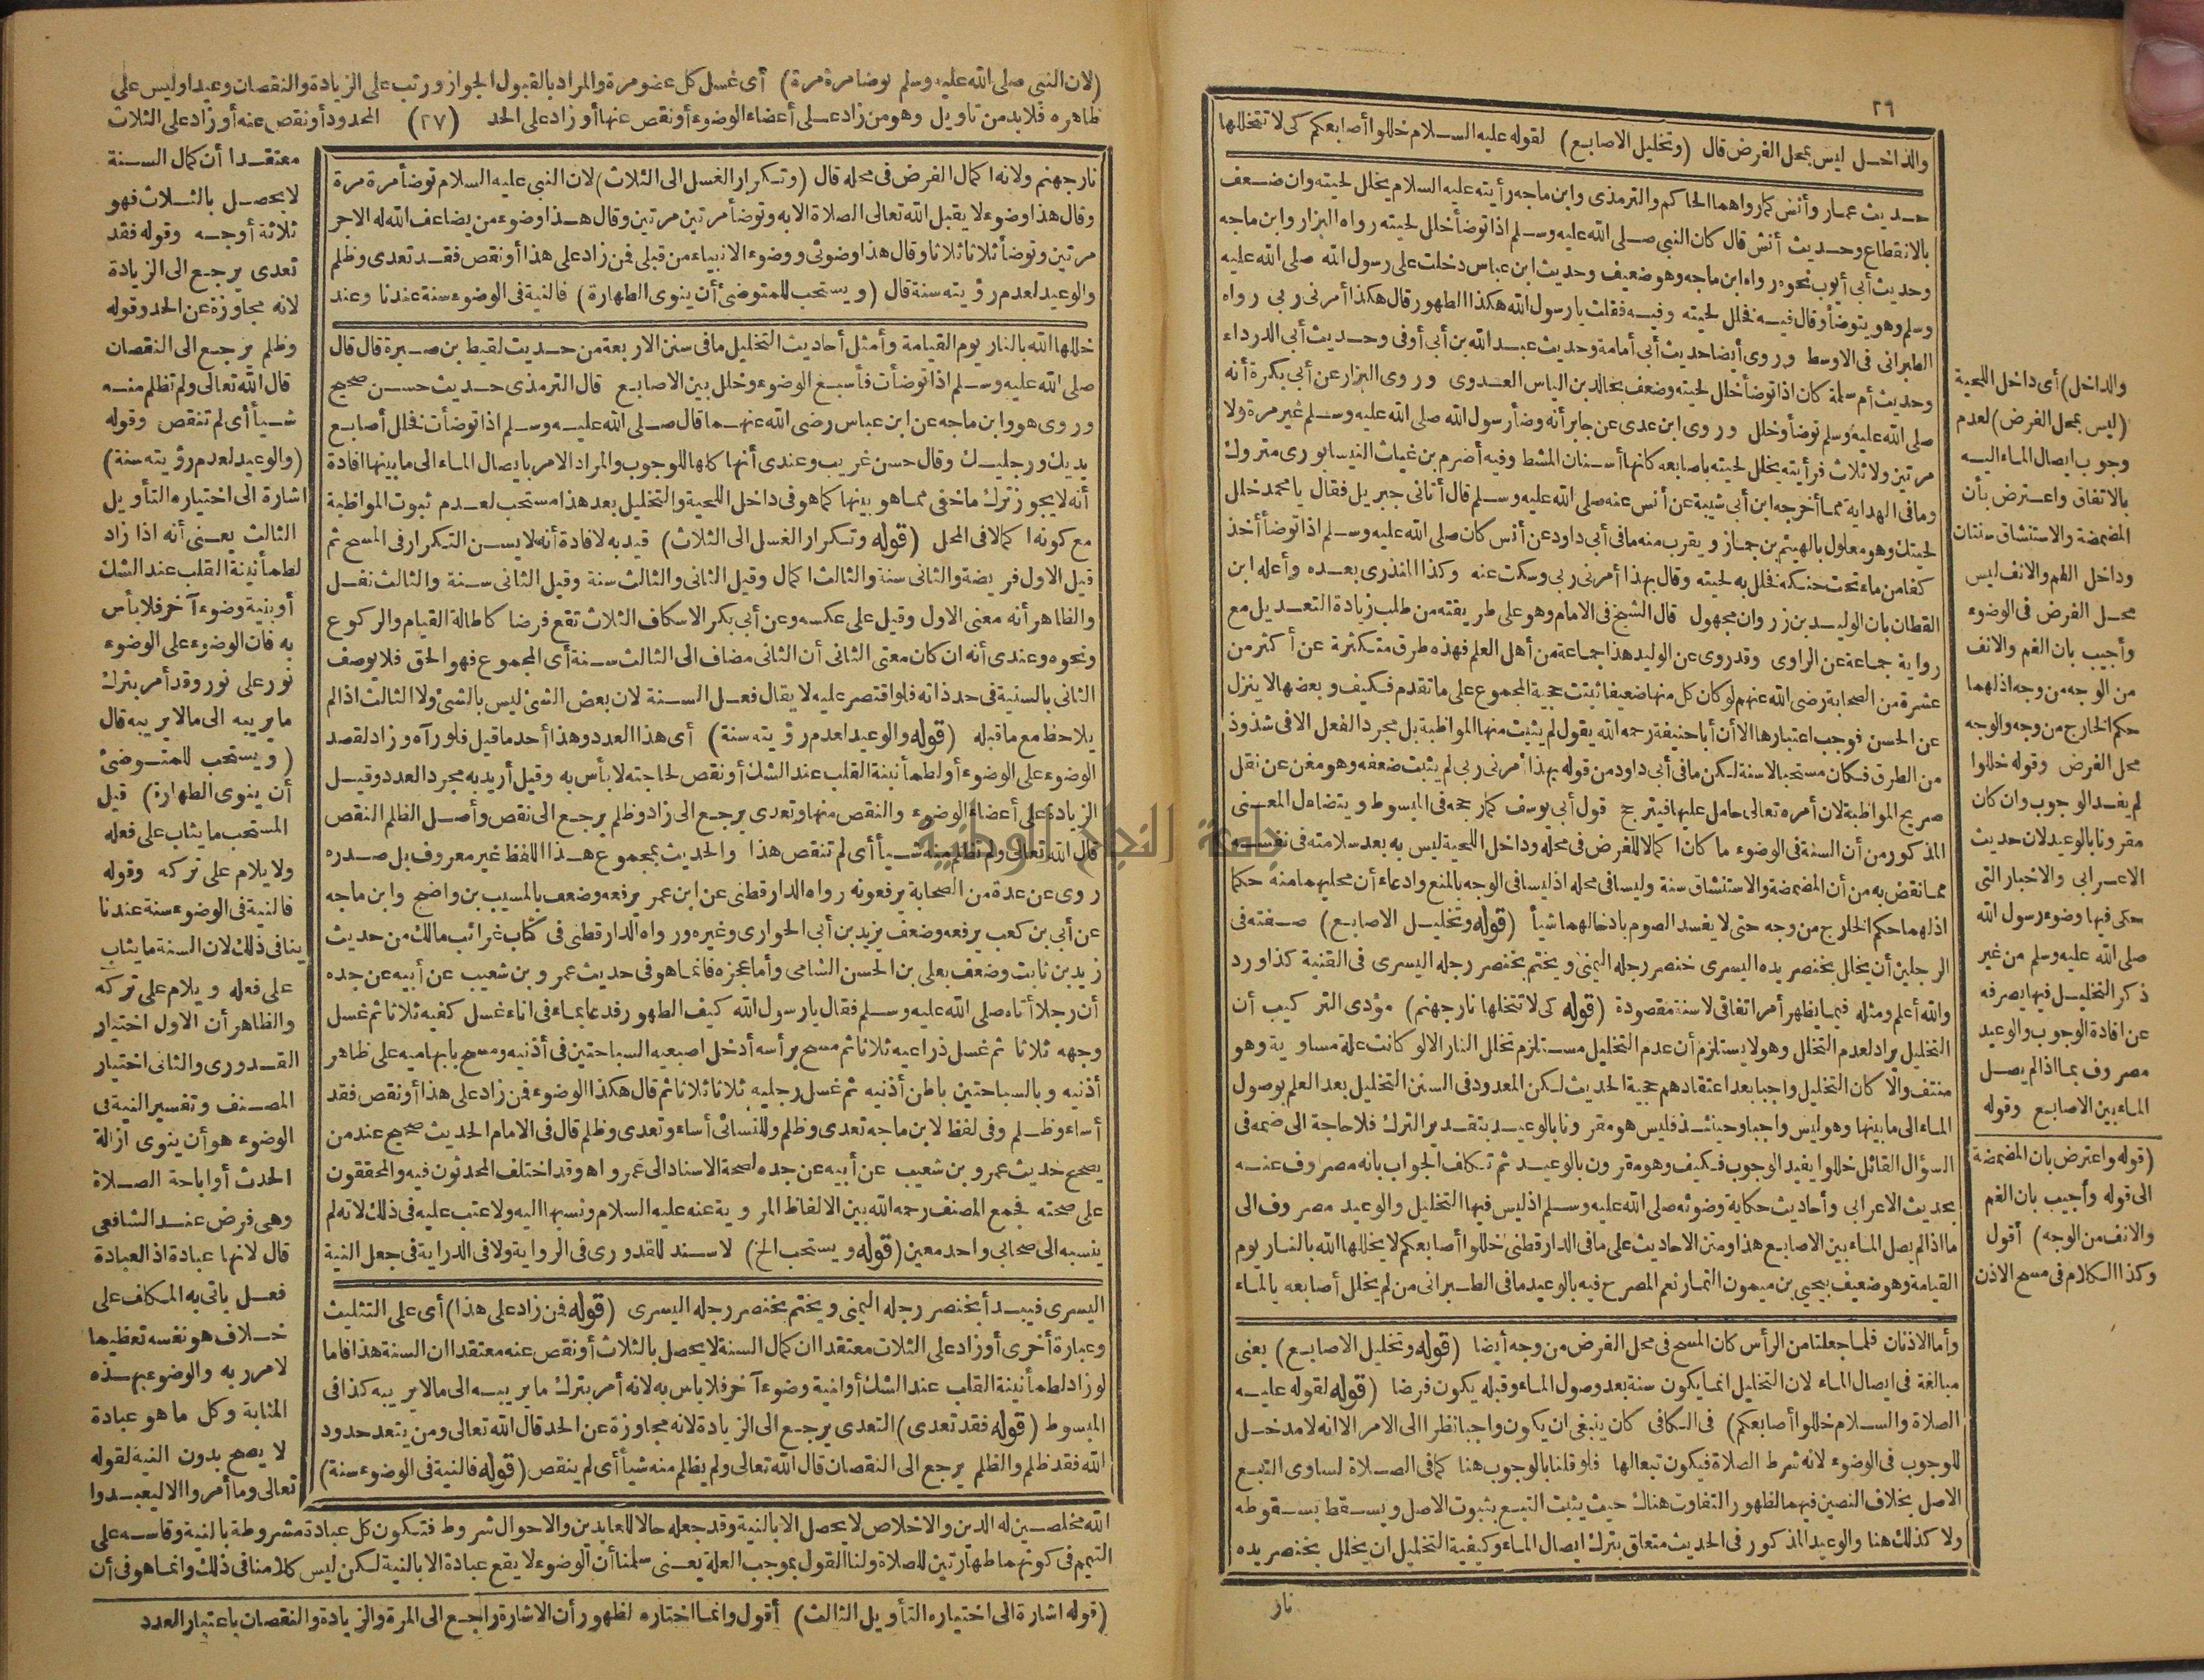 ٢٦
والداخل ليس بمحل الفرض قال (وتخليل الاصابع) لقوله عليه السلام خللوا أصابعكم كى لا تتخللها
حديث عمار وأنس كما رواهما الحاكم والترمذى وابن ماجه رأيته عليه السلام يخلل لحيته وان ضعف
بالانقطاع وحديث أنس قال كان النبى صلى الله عليه وسلم اذا توضأ خلل لحيته رواه البزار وابن ماجه
وحديث أبى أيوب نحوه رواه ابن ماجه وهو ضعيف وحديث ابن عباس دخلت على رسول الله صلى الله عليه
وسلم وهو يتوضأ وقال فيه فخلل لحيته وفيه فقلت يا رسول الله هكذا الطهور قال هكذا أمرنى ربى رواه
الطبرانى فى الاوسط وروى أيضا حديث أبى أمامة وحديث عبد الله بن أبى أوفى وحديث أبى الدرداء
وحديث أم سلمة كان اذا توضأ خلل لحيته وضعف بخالد بن الياس العدوى وروى البزار عن أبى بكرة أنه
صلى الله عليه وسلم توضأ وخلل وروى ابن عدى عن جابر أنه وضأ رسول الله صلى الله عليه وسلم غير مرة ولا
مرتين ولا ثلاث فرأيته يخلل لحيته باصابعه كانها أسنان المشط وفيه أصرم بن غياث النيسابورى متروك
وما فى الهداية مما أخرجه ابن أبى شيبة عن أنس عنه صلى الله عليه وسلم قال أتانى جبريل فقال يا محمد خلل
لحيتك وهو معلول بالهيثم بن جماز ويقرب منه ما فى أبى داود عن أنس كان صلى الله عليه وسلم اذا توضأ أخذ
كفا من ماء تحت حنكه فخلل به لحيته وقال بهذا أمرنى ربى وسكت عنه وكذا المنذرى بعده وأعله ابن
القطان بان الوليد بن زروان مجهول قال الشيخ فى الامام وهو على طريقته من طلب زيادة التعديل مع
رواية جماعة عن الراوى وقد روى عن الوليد هذا جماعة من أهل العلم فهذه طرق متكثرة عن أكثر من
عشرة من الصحابة رضى الله عنهم لو كان كل منها ضعيفا ثبتت حجية المجموع على ما تقدم فكيف وبعضها لا ينزل
عن الحسن فوجب اعتبارها الا أن أبا حنيفة رحمه الله يقول لم يثبت منها المواظبة بل مجرد الفعل الا فى شذوذ
من الطرق فكان مستحبا لا سنة لكن ما فى أبى داود من قوله بهذا أمرنى ربى لم يثبت ضعفه وهو مغن عن نقل
صريح المواظبة لان أمره تعالى حامل عليها فيترجح قول أبى يوسف كما رجحه فى المبسوط ويتضاءل المعنى
المذكور من أن السنة فى الوضوء ما كان اكمالا للفرض فى محله وداخل اللحية ليس به بعد سلامته فى نفسه
مما نقض به من أن المضمضة والاستنشاق سنة وليسا فى محله اذ ليسا فى الوجه بالمنع وادعاء أن محليهما منه حكما
اذ لهما حكم الخارج من وجه حتى لا يفسد الصوم بادخالهما شيأ (قوله وتخليل الاصابع) صفته فى
الرجلين أن يخلل بخنصر يده اليسرى خنصر رجله اليمنى ويختم بخنصر رجله اليسرى فى القنية كذا ورد
والله أعلم ومثله فيما يظهر أمر اتفاقى لا سنة مقصودة (قوله كى لا تتخللها نار جهنم) مؤدى التركيب أن
التخليل يراد لعدم التخلل وهو لا يستلزم أن عدم التخليل مستلزم تخلل النار الا لو كانت علة مساوية وهو
منتف والا كان التخليل واجبا بعد اعتقادهم حجية الحديث لكن المعدود فى السنن التخليل بعد العلم بوصول
الماء الى ما بينها وهو ليس واجبا وحينئذ فليس هو مقرونا بالوعيد بتقدير الترك فلا حاجة الى ضمه فى
السؤال القائل خللوا يفيد الوجوب فكيف وهو مقرون بالوعيد ثم تكلف الجواب بانه مصروف عنه
بحديث الاعرابى وأحاديث حكاية وضوئه صلى الله عليه وسلم اذ ليس فيها التخليل والوعيد مصروف الى
ما اذا لم يصل الماء بين الاصابع هذا ومتن الاحاديث على ما فى الدارقطنى خللوا أصابعكم لا يخللها الله بالنار يوم
القيامة وهو ضعيف بيحيى بن ميمون التمار نعم المصرح فيه بالوعيد ما فى الطبرانى من لم يخلل أصابعه بالماء
وأما الاذنان فلما جعلنا من الرأس كان المسح فى محل الفرض من وجه أيضا (قوله وتخليل الاصابع) يعنى
مبالغة فى ايصال الماء لان التخليل انما يكون سنة بعد وصول الماء وقبله يكون فرضا (قوله لقوله عليه
الصلاة والسلام خللوا أصابعكم) فى الكافى كان ينبغى ان يكون واجبا نظرا الى الامر الا انه لا مدخل
للوجوب فى الوضوء لانه شرط الصلاة فيكون تبعا لها فلو قلنا بالوجوب هنا كما فى الصلاة لساوى التبع
الاصل بخلاف النصين فيهما لظهور التفاوت هناك حيث يثبت التبع بثبوت الاصل ويسقط بسقوطه
ولا كذلك هنا والوعيد المذكور فى الحديث متعلق بترك ايصال الماء وكيفية التخليل ان يخلل بخنصر يده
نار
والداخل) أى داخل اللحية
(ليس بمحل الفرض) لعدم
وجوب ايصال الماء اليه
بالاتفاق واعترض بأن
المضمضة والاستنشاق سنتان
وداخل الفم والانف ليس
محل الفرض فى الوضوء
وأجيب بان الفم والانف
من الوجه من وجه اذ لهما
حكم الخارج من وجه والوجه
محل الفرض وقوله خللوا
لم يفد الوجوب وان كان
مقرونا بالوعيد لان حديث
الاعرابى والاخبار التى
حكى فيها وضوء رسول الله
صلى الله عليه وسلم من غير
ذكر التخليل فيها يصرفه
عن افادة الوجوب والوعيد
مصروف بما اذا لم يصل
الماء بين الاصابع وقوله
(قوله واعترض بان المضمضة
الى قوله وأجيب بان الفم
والانف من الوجه) أقول
وكذا الكلام فى مسح الاذن
(لان النبى صلى الله عليه وسلم توضأ مرة مرة) أى غسل كل عضو مرة والمراد بالقبول الجواز ورتب على الزيادة والنقصان وعيدا وليس على
ظاهره فلا بد من تأويل وهو من زاد على أعضاء الوضوء أو نقص عنها أو زاد على الحد (٢٧) المحدود أو نقص عنه أو زاد على الثلاث
معتقدا أن كمال السنة
لا يحصل بالثلاث فهو
ثلاثة أوجه وقوله فقد
تعدى يرجع الى الزيادة
لانه مجاوزة عن الحد وقوله
وظلم يرجع الى النقصان
قال الله تعالى ولم تظلم منه
شيأ أى لم تنقص وقوله
(والوعيد لعدم رؤيته سنة)
اشارة الى اختياره التأويل
الثالث يعنى أنه اذا زاد
لطمأنينة القلب عند الشك
أو بنية وضوء آخر فلا بأس
به فان الوضوء على الوضوء
نور على نور وقد أمر بترك
ما يريبه الى ما لا يريبه قال
(ويستحب للمتوضئ
أن ينوى الطهارة) قيل
المستحب ما يثاب على فعله
ولا يلام على تركه وقوله
فالنية فى الوضوء سنة عندنا
ينافى ذلك لان السنة ما يثاب
على فعله ويلام على تركه
والظاهر أن الاول اختيار
القدورى والثانى اختيار
المصنف وتفسير النية فى
الوضوء هو أن ينوى ازالة
الحدث أو اباحة الصلاة
وهى فرض عند الشافعى
قال لانها عبادة اذ العبادة
فعل يأتى به المكلف على
خلاف هو نفسه تعظيما
لامر ربه والوضوء بهذه
المثابة وكل ما هو عبادة
لا يصح بدون النية لقوله
تعالى وما أمروا الا ليعبدوا
نار جهنم ولانه اكمال الفرض فى محله قال (وتكرار الغسل الى الثلاث) لان النبى عليه السلام توضأ مرة مرة
وقال هذا وضوء لا يقبل الله تعالى الصلاة الا به وتوضأ مرتين مرتين وقال هذا وضوء من يضاعف الله له الاجر
مرتين وتوضأ ثلاثا ثلاثا وقال هذا وضوئى ووضوء الانبياء من قبلى فمن زاد على هذا أو نقص فقد تعدى وظلم
والوعيد لعدم رؤيته سنة قال (ويستحب للمتوضئ أن ينوى الطهارة) فالنية فى الوضوء سنة عندنا وعند
خللها الله بالنار يوم القيامة وأمثل أحاديث التخليل ما فى سنن الاربعة من حديث لقيط بن صبرة قال قال
صلى الله عليه وسلم اذا توضأت فأسبغ الوضوء وخلل بين الاصابع قال الترمذى حديث حسن صحيح
وروى هو وابن ماجه عن ابن عباس رضى الله عنهما قال صلى الله عليه وسلم اذا توضأت فخلل أصابع
يديك ورجليك وقال حسن غريب وعندى أنها كلها للوجوب والمراد الامر بايصال الماء الى ما بينها افادة
أنه لا يجوز ترك ما خفى مما هو بينها كما هو فى داخل اللحية والتخليل بعد هذا مستحب لعدم ثبوت المواظبة
مع كونه اكمالا فى المحل (قوله وتكرار الغسل الى الثلاث) قيد به لافادة أنه لا يسن التكرار فى المسح ثم
قيل الاول فريضة والثانى سنة والثالث اكمال وقيل الثانى والثالث سنة وقيل الثانى سنة والثالث نفل
والظاهر أنه معنى الاول وقيل على عكسه وعن أبى بكر الاسكاف الثلاث تقع فرضا كاطالة القيام والركوع
ونحوه وعندى أنه ان كان معنى الثانى أن الثانى مضاف الى الثالث سنة أى المجموع فهو الحق فلا يوصف
الثانى بالسنية فى حد ذاته فلو اقتصر عليه لا يقال فعل السنة لان بعض الشئ ليس بالشئ ولا الثالث اذا لم
يلاحظ مع ما قبله (قوله والوعيد لعدم رؤيته سنة) أى هذا العدد وهذا أحد ما قيل فلو رآه وزاد لقصد
الوضوء على الوضوء أو لطمأنينة القلب عند الشك أو نقص لحاجته لا بأس به وقيل أريد به مجرد العدد وقيل
الزيادة على أعضاء الوضوء والنقص منها وتعدى يرجع الى زاد وظلم يرجع الى نقص وأصل الظلم النقص
قال الله تعالى ولم تظلم منه شيأ أى لم تنقص هذا والحديث بمجموع هذا اللفظ غير معروف بل صدره
روى عن عدة من الصحابة يرفعونه رواه الدارقطنى عن ابن عمر يرفعه وضعف بالمسيب بن واضح وابن ماجه
عن أبى بن كعب يرفعه وضعف بزيد بن أبى الحوارى وغيره ورواه الدارقطنى فى كتاب غرائب مالك من حديث
زيد بن ثابت وضعف بعلى بن الحسن الشامى وأما عجزه فانما هو فى حديث عمرو بن شعيب عن أبيه عن جده
أن رجلا أتاه صلى الله عليه وسلم فقال يا رسول الله كيف الطهور فدعا بماء فى اناء غسل كفيه ثلاثا ثم غسل
وجهه ثلاثا ثم غسل ذراعيه ثلاثا ثم مسح برأسه أدخل اصبعيه السباحتين فى أذنيه ومسح بابهاميه على ظاهر
أذنيه وبالسباحتين باطن أذنيه ثم غسل رجليه ثلاثا ثلاثا ثم قال هكذا الوضوء فمن زاد على هذا أو نقص فقد
أساء وظلم وفى لفظ لابن ماجه تعدى وظلم وللنسائى أساء وتعدى وظلم قال فى الامام الحديث صحيح عند من
يصحح حديث عمرو بن شعيب عن أبيه عن جده لصحة الاسناد الى عمرو اه وقد اختلف المحدثون فيه والمحققون
على صحته فجمع المصنف رحمه الله بين الالفاظ المروية عنه عليه السلام ونسبها اليه ولا عتب عليه فى ذلك لانه لم
ينسبه الى صحابى واحد معين (قوله ويستحب الخ) لا سند للقدورى فى الرواية ولا فى الدراية فى جعل النية
اليسرى فيبدأ بخنصر رجله اليمنى ويختم بخنصر رجله اليسرى (قوله فمن زاد على هذا) أى على التثليث
وعبارة أخرى أو زاد على الثلاث معتقدا ان كمال السنة لا يحصل بالثلاث أو نقص عنه معتقدا ان السنة هذا فاما
لو زاد لطمأنينة القلب عند الشك أو لنية وضوء آخر فلا بأس به لانه أمر بترك ما يريبه الى ما لا يريبه كذا فى
المبسوط (قوله فقد تعدى) التعدى يرجع الى الزيادة لانه مجاوزة عن الحد قال الله تعالى ومن يتعد حدود
الله فقد ظلم والظلم يرجع الى النقصان قال الله تعالى ولم يظلم منه شيأ أى لم ينقص (قوله فالنية فى الوضوء سنة)
الله مخلصين له الدين والاخلاص لا يحصل الا بالنية وقد جعله حالا للعابدين والاحوال شروط فتكون كل عبادة مشروطة بالنية وقاسه على
التيمم فى كونهما طهارتين للصلاة ولنا القول بموجب العلة يعنى سلمنا أن الوضوء لا يقع عبادة الا بالنية لكن ليس كلامنا فى ذلك وانما هو فى أن
(قوله اشارة الى اختياره التأويل الثالث) أقول وانما اختاره لظهور أن الاشارة راجع الى المرة والزيادة والنقصان باعتبار العدد
جامعة النجاح الوطنية